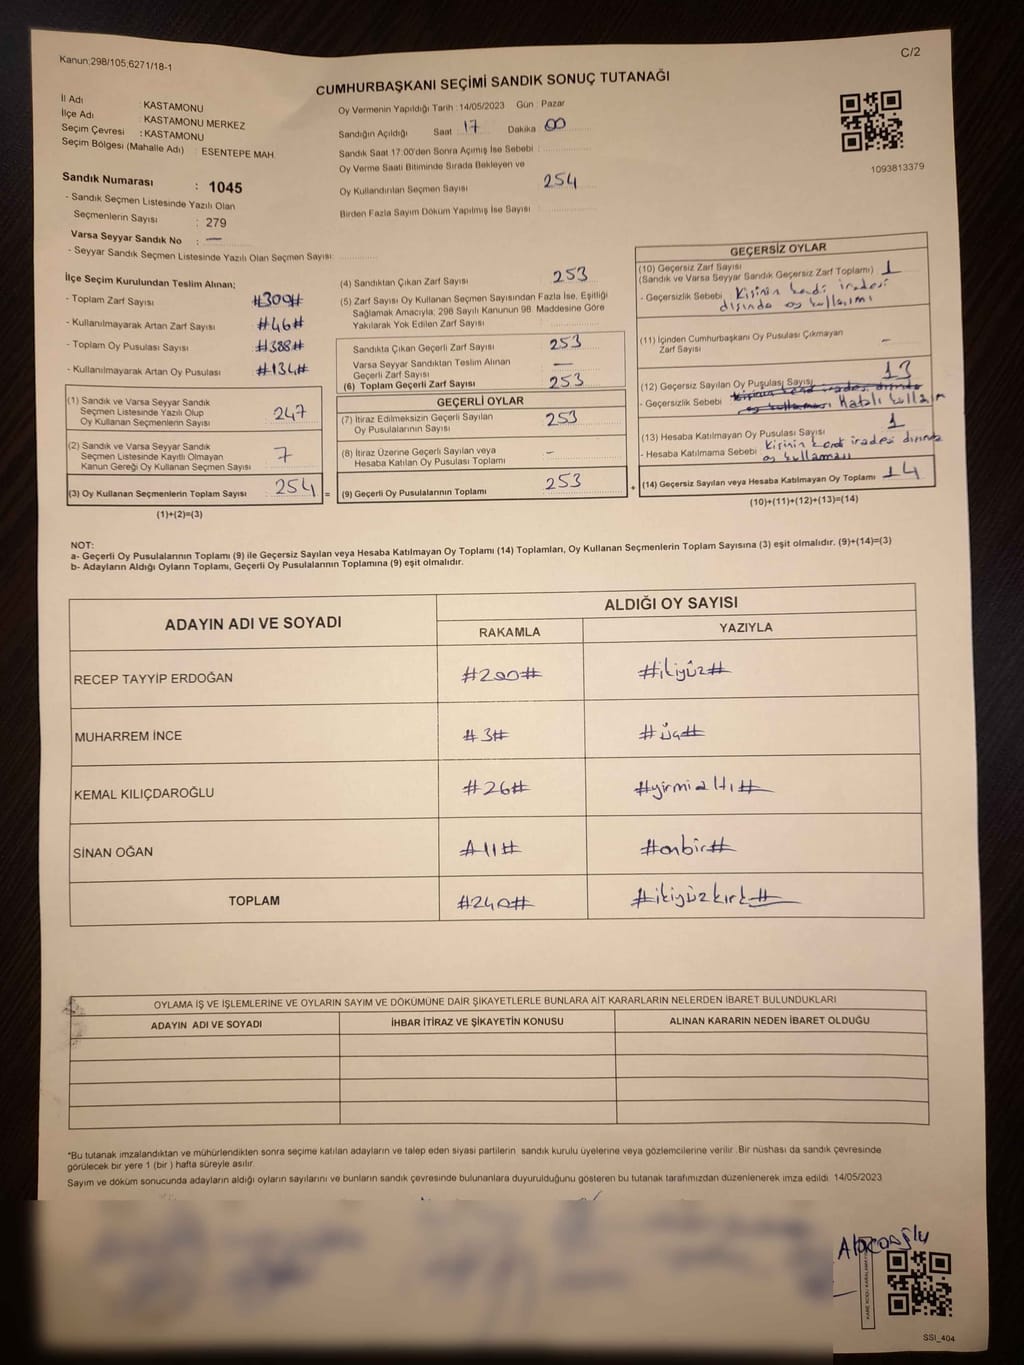 Kanun;298/105;6271/18-1
C/2
CUMHURBAŞKANI SEÇİMİ SANDIK SONUÇ TUTANAĞI
İl Adı : KASTAMONU
İlçe Adı : KASTAMONU MERKEZ
Seçim Çevresi : KASTAMONU
Seçim Bölgesi (Mahalle Adı) : ESENTEPE MAH.
Oy Vermenin Yapıldığı Tarih :14/05/2023 Gün : Pazar
Sandığın Açıldığı Saat 17 Dakika 00
Sandık Saat 17:00'den Sonra Açımış İse Sebebi :
Oy Verme Saati Bitiminde Sırada Bekleyen ve
Oy Kullandırılan Seçmen Sayısı 254
Birden Fazla Sayım Döküm Yapılmış İse Sayısı :
1093813379
Sandık Numarası : 1045
- Sandık Seçmen Listesinde Yazılı Olan
Seçmenlerin Sayısı : 279
Varsa Seyyar Sandık No : —
- Seyyar Sandık Seçmen Listesinde Yazılı Olan Seçmen Sayısı:
İlçe Seçim Kurulundan Teslim Alınan;
- Toplam Zarf Sayısı #300#
- Kullanılmayarak Artan Zarf Sayısı #46#
- Toplam Oy Pusulası Sayısı #388#
- Kullanılmayarak Artan Oy Pusulası #134#
(1) Sandık ve Varsa Seyyar Sandık
Seçmen Listesinde Yazılı Olup
Oy Kullanan Seçmenlerin Sayısı 247
(2) Sandık ve Varsa Seyyar Sandık
Seçmen Listesinde Kayıtlı Olmayan
Kanun Gereği Oy Kullanan Seçmen Sayısı 7
(3) Oy Kullanan Seçmenlerin Toplam Sayısı 254 =
(1)+(2)=(3)
(4) Sandıktan Çıkan Zarf Sayısı 253
(5) Zarf Sayısı Oy Kullanan Seçmen Sayısından Fazla İse, Eşitliği
Sağlamak Amacıyla; 298 Sayılı Kanunun 98. Maddesine Göre
Yakılarak Yok Edilen Zarf Sayısı :
Sandıkta Çıkan Geçerli Zarf Sayısı 253
Varsa Seyyar Sandıktan Teslim Alınan
Geçerli Zarf Sayısı —
(6) Toplam Geçerli Zarf Sayısı 253
GEÇERLİ OYLAR
(7) İtiraz Edilmeksizin Geçerli Sayılan
Oy Pusulalarının Sayısı 253
(8) İtiraz Üzerine Geçerli Sayılan veya
Hesaba Katılan Oy Pusulası Toplamı -
(9) Geçerli Oy Pusulalarının Toplamı 253 +
GEÇERSİZ OYLAR
(10) Geçersiz Zarf Sayısı
(Sandık ve Varsa Seyyar Sandık Geçersiz Zarf Toplamı) 1
- Geçersizlik Sebebi Kişinin kendi iradesi
dışında oy kullanımı
(11) İçinden Cumhurbaşkanı Oy Pusulası Çıkmayan
Zarf Sayısı -
(12) Geçersiz Sayılan Oy Pusulası Sayısı 13
- Geçersizlik Sebebi Hatalı kullanım
(13) Hesaba Katılmayan Oy Pusulası Sayısı 1
- Hesaba Katılmama Sebebi Kişinin kendi iradesi dışında
oy kullanması
(14) Geçersiz Sayılan veya Hesaba Katılmayan Oy Toplamı 14
(10)+(11)+(12)+(13)=(14)
NOT:
a- Geçerli Oy Pusulalarının Toplamı (9) ile Geçersiz Sayılan veya Hesaba Katılmayan Oy Toplamı (14) Toplamları, Oy Kullanan Seçmenlerin Toplam Sayısına (3) eşit olmalıdır. (9)+(14)=(3)
b- Adayların Aldığı Oyların Toplamı, Geçerli Oy Pusulalarının Toplamına (9) eşit olmalıdır.
ADAYIN ADI VE SOYADI ALDIĞI OY SAYISI
RAKAMLA YAZIYLA
RECEP TAYYİP ERDOĞAN #200# #ikiyüz#
MUHARREM İNCE #3# #üç#
KEMAL KILIÇDAROĞLU #26# #yirmialtı#
SİNAN OĞAN #11# #onbir#
TOPLAM #240# #ikiyüzkırk#
OYLAMA İŞ VE İŞLEMLERİNE VE OYLARIN SAYIM VE DÖKÜMÜNE DAİR ŞİKAYETLERLE BUNLARA AİT KARARLARIN NELERDEN İBARET BULUNDUKLARI
ADAYIN ADI VE SOYADI İHBAR İTİRAZ VE ŞİKAYETİN KONUSU ALINAN KARARIN NEDEN İBARET OLDUĞU
*Bu tutanak imzalandıktan ve mühürlendikten sonra seçime katılan adayların ve talep eden siyasi partilerin sandık kurulu üyelerine veya gözlemcilerine verilir. Bir nüshası da sandık çevresinde
görülecek bir yere 1 (bir ) hafta süreyle asılır.
Sayım ve döküm sonucunda adayların aldığı oyların sayılarını ve bunların sandık çevresinde bulunanlara duyurulduğunu gösteren bu tutanak tarafımızdan düzenlenerek imza edildi. 14/05/2023
SSI_404